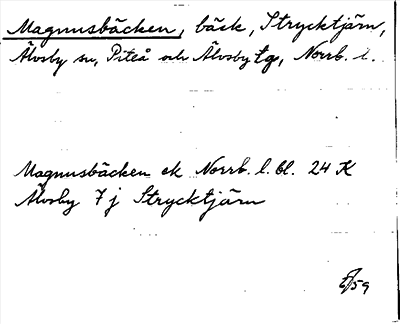 Magnusbäcken, bäck, Strycktjärn,
Älvsby sn, Piteå och Älvsby tg, Norrb. l.
Magnusbäcken ek Norrb. l. bl. 24 K
Älvsby 7 j Strycktjärn